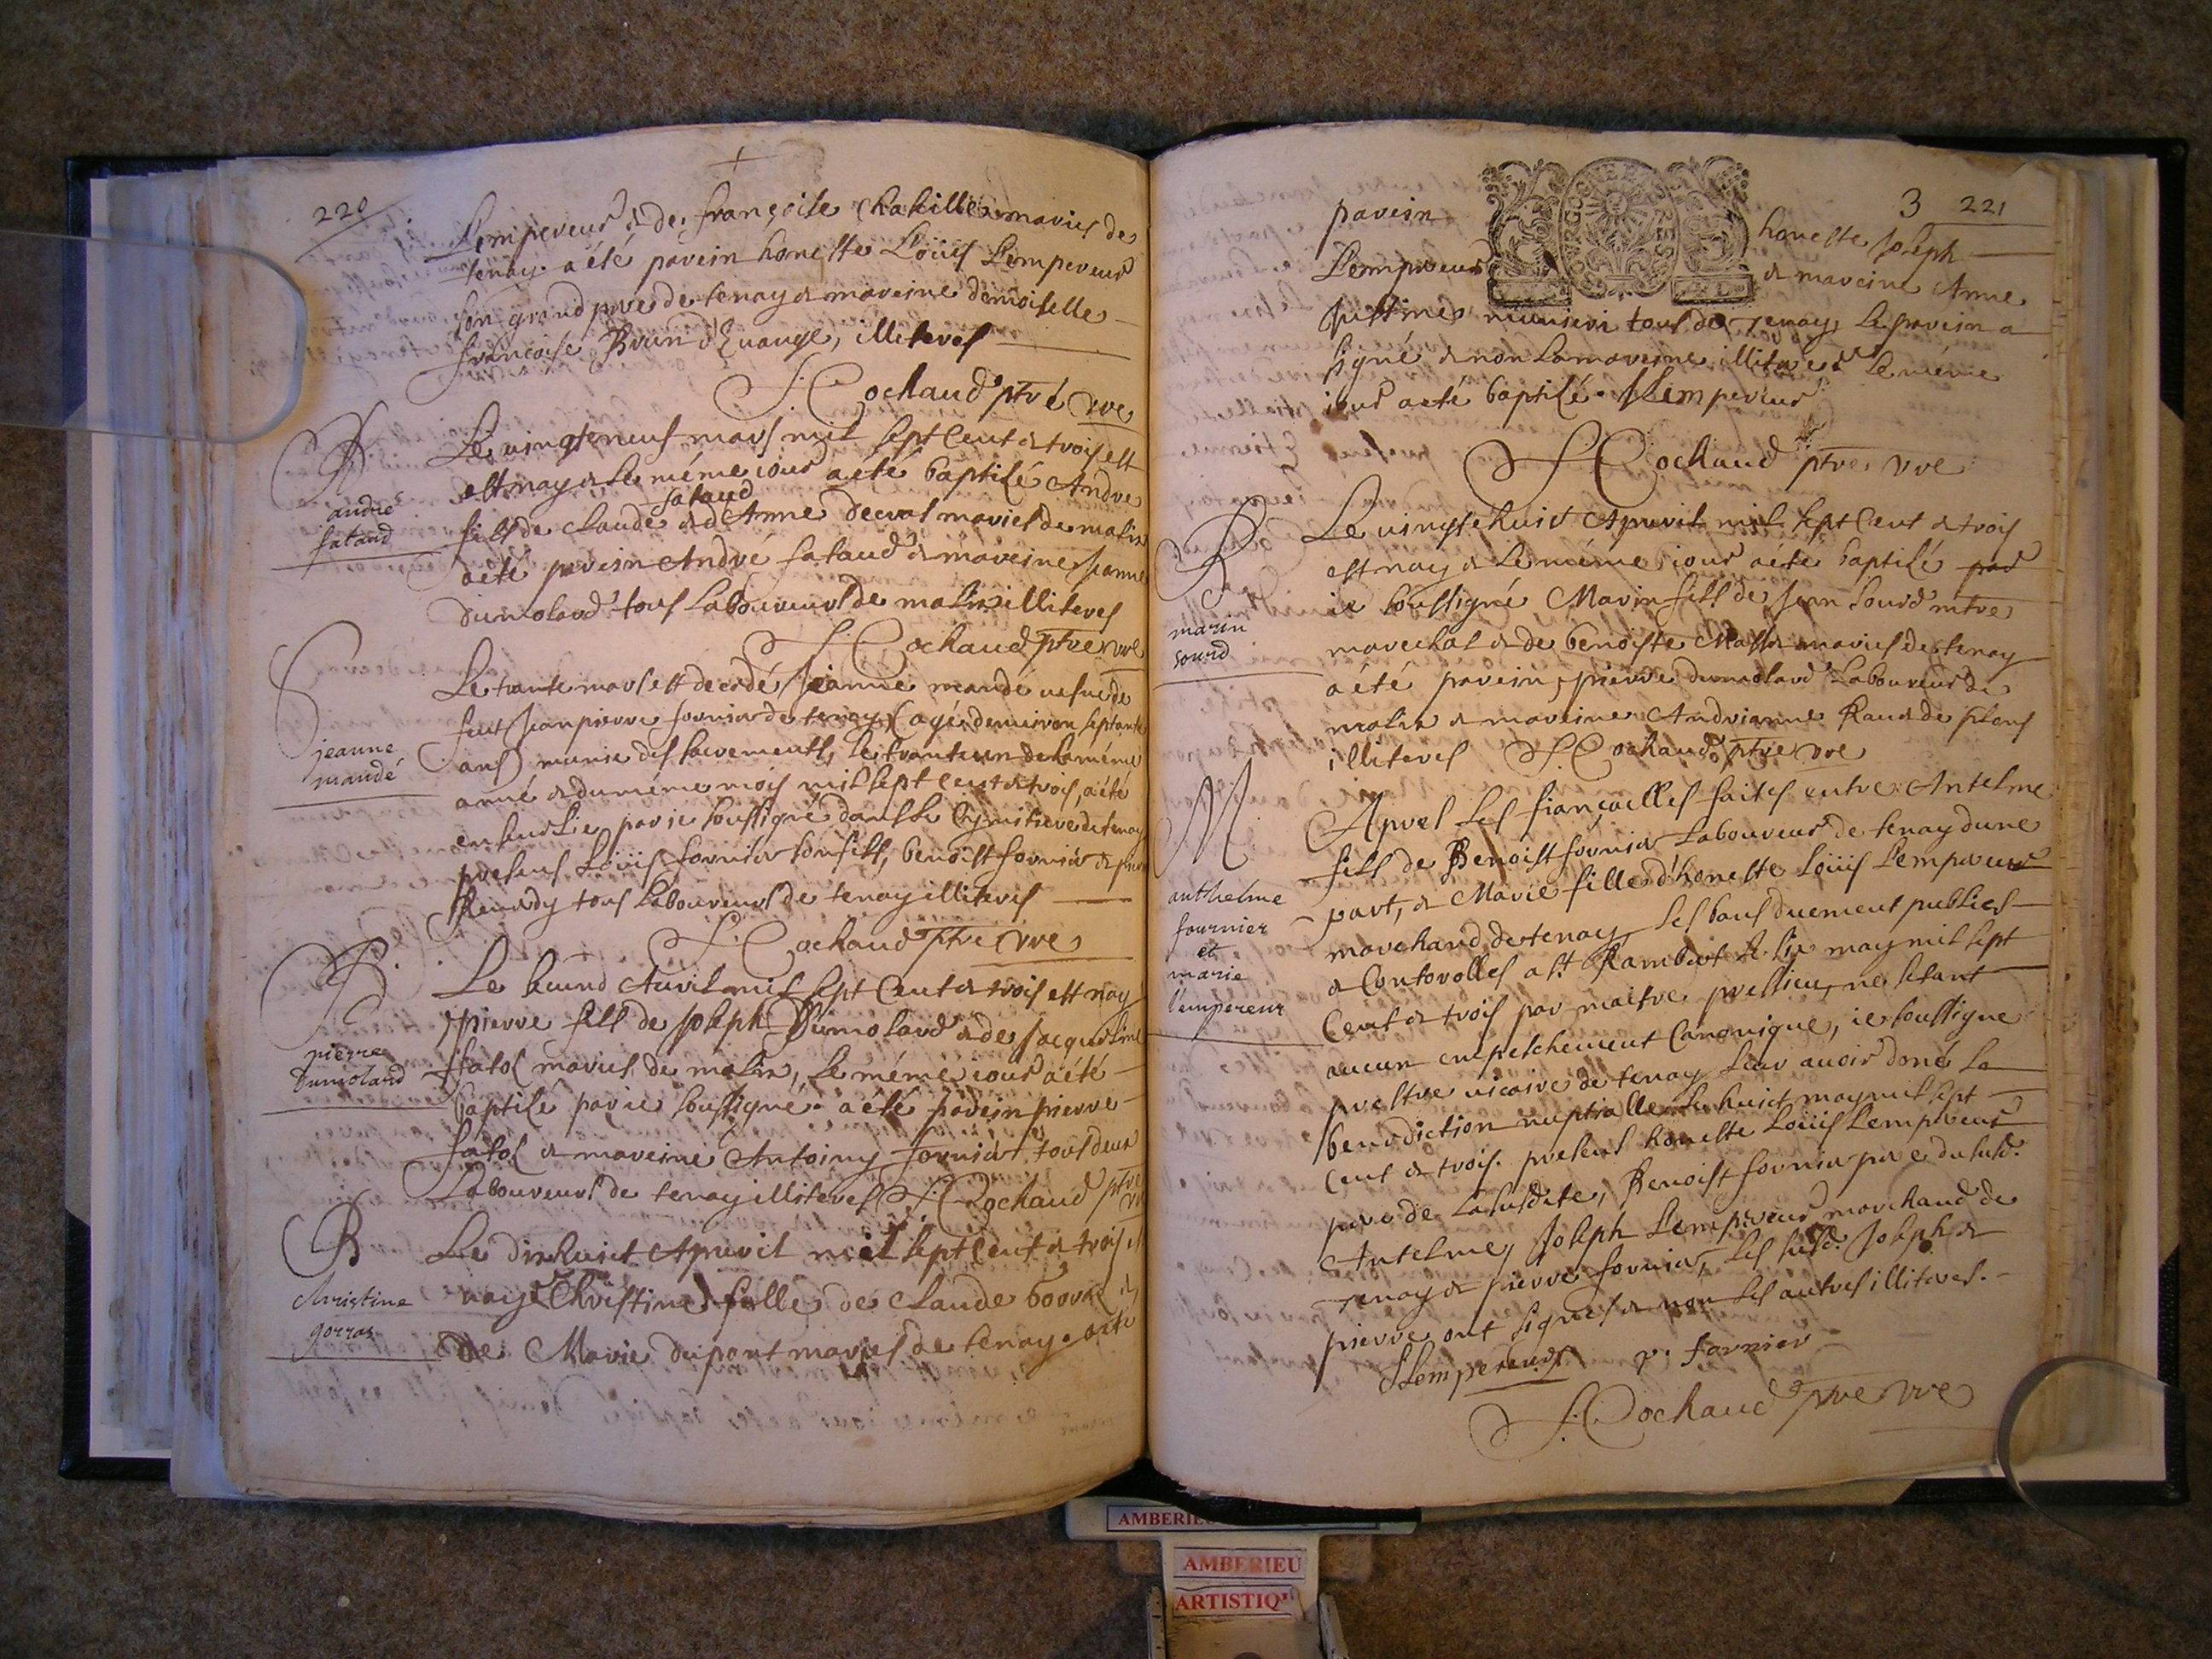 220
Lempereur & de françoise Chabillié mariés de
tenay. a été parein honeste Loüis Lempereur
son grand pere de tenay & mareine demoiselle
françoise Brun d'Euange, illiteres
F. Cochaud ptre vre
B
andré
fataud
Le vingt neuf mars mil sept Cent & trois est
est nay & le méme iour a été baptisé Andre
fataud
fils de claude & d'Anne decrat mariés de malix
a été parein André fataud & mareine Jeanne
Dumolard tous Laboureurs de malix illiteres
F. Cochaud ptre vre
S
jeanne
mandé
Le trante mars est decedé Jeanne mandé vefue de
feut Jean pierre fornier de tenay (agée d'enuiron septante
ans) munie des sacrements, le trante un de la méme
anné & du méme mois mil sept Cent & trois, a été
enseuelie par ie soussigné dans le Cymitiere de tenay
presens Loüis fornier son fils, benoist fornier &
tous Laboureurs de tenay illiteres
F. Cochaud ptre vre
B.
pierre
Dumolard
Le second Avril mil sept Cent & trois est nay
pierre fils de Joseph Dumolard & de Jacqueline
mariés de malix, le méme iour a été
baptisé par ie soussigné. a été parein pierre
& mareine Antoiny fornier tous deux
Laboureurs de tenay illiteres F. Cochaud ptre
vre
B
christine
gorraz
Le dixhuict Apuril mil sept Cent & trois est
nay Christine fille de Claude &
de Marie dupont mariés de tenay. a été
3 221
parein honeste Joseph
Lempereur & mareine Anne
Justine muniere tous de Tenay, le parein a
signé & non la mareine illitere & le méme
iour a été baptisé. JLempereur
F. Cochaud ptre vre
B
marin
sourd
Le vingt & huict Apuril mil sept Cent & trois
est nay & le méme iour a été baptisé par
ie soussigné Marin fils de Jean Sourd mtre
marechal & de benoiste mariés de tenay
a été parein, pierre dumolard Laboureur de
malix & mareine Andrianne Raud de plans
illiteres F. Cochaud ptre vre
M
anthelme
fournier
et
marie
l'empereur
Apres les fiançailles faites entre Antelme
fils de Benoist fornier Laboureur de tenay dune
part, & Marie fille d'honeste Loüis Lempereur
marchand de tenay, les bans duement publies
& Controlles a St. Rambert le six may mil sept
Cent & trois par maitre pressieu, ne setant
aucun empeschement Canonique, ie soussigne
prestre vicaire de tenay leur auoir doné la
benediction nuptialle le huict may mil sept
Cent & trois. presens honeste Loüis Lempereur
pere de la susdite, Benoist fornier pere du susd.
Antelme, Joseph Lempereur marchand de
Tenay & pierre fornier, les susd. Joseph &
pierre ont signes & non les autres illiteres.
JLempereur p. fornier
F. Cochaud ptre vre
AMBERIEU
AMBERIEU
ARTISTIQU